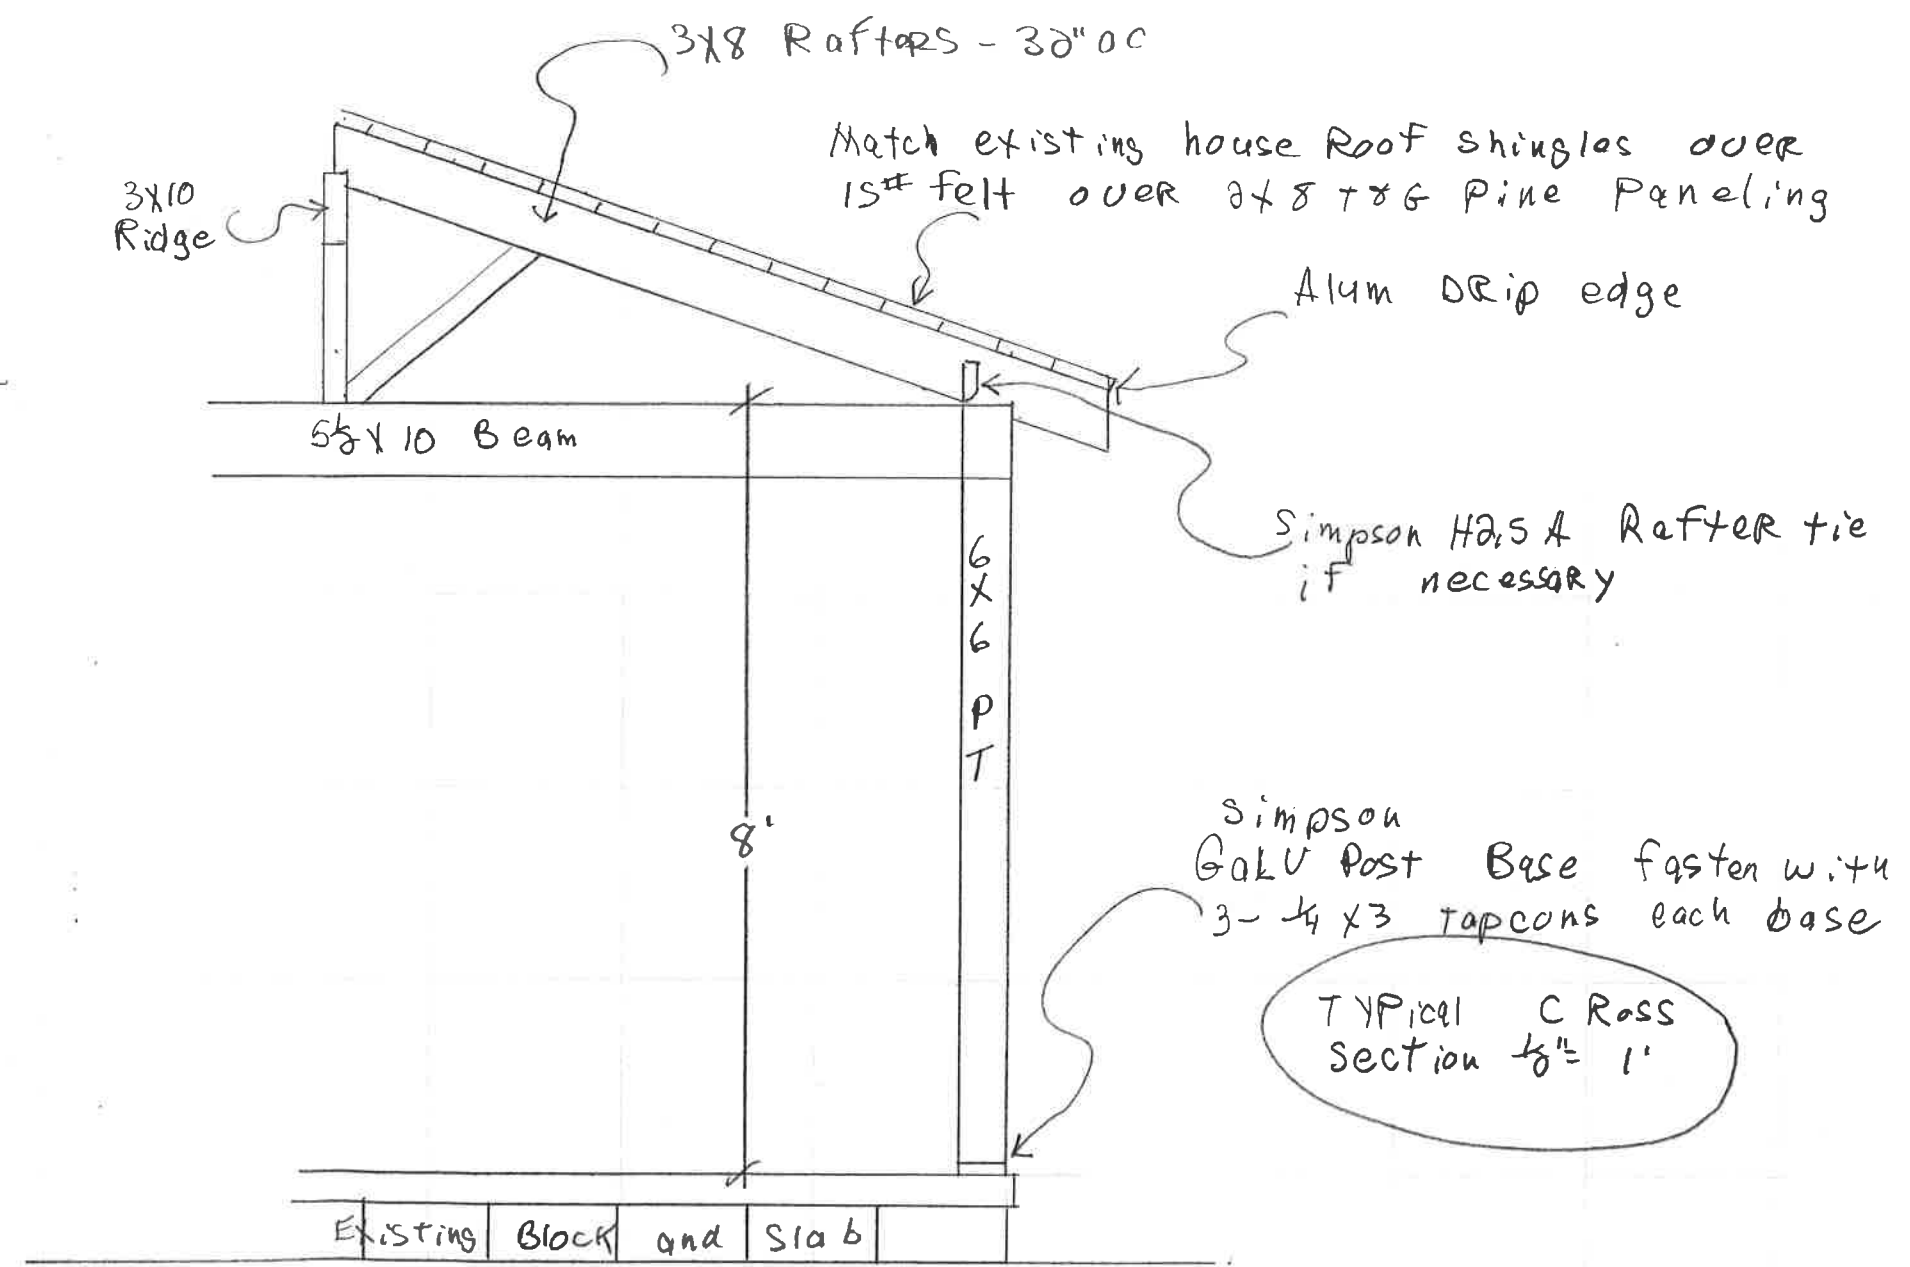 3X8 Raftors - 32" OC
Match existing house Roof shingles over
15# felt over 2X8 T&G Pine Paneling
3X10
Ridge
Alum DRip edge
5½ X 10 Beam
Simpson H2.5A Rafter tie
if necessary
6
X
6
P
T
8'
Simpson
GaLV Post Base fasten with
3- ¼ X3 Tapcons each base
TYPical CRoss
section ½"= 1'
Existing Block and Slab